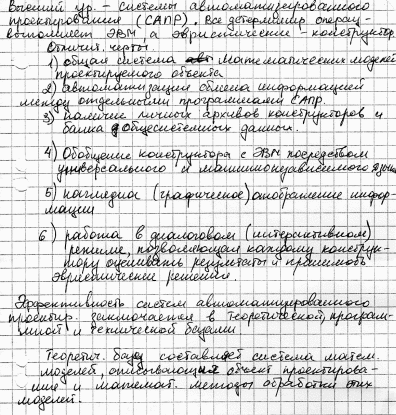 Высший ур. - системы автоматизированного
проектирования (САПР). Все детерминир операц -
выполняет ЭВМ, а эвристические - конструктор.
Отличит. черты
1) общая система математических моделей
проектируемого объекта
2) автоматизация обмена информацией
между отдельными программами САПР.
3) наличие личных архивов конструкторов и
банка общесистемных данных.
4) Обобщение конструктора с ЭВМ посредством
универсального и машинонезависимого языка
5) наглядное (графическое) отображение инфор-
мации
6) работа в диалоговом (интерактивном)
режиме, позволяющая каждому конструк-
тору оценивать результаты и принимать
эвристические решения.
Эффективность систем автоматизированного
проектир. заключается в теоретической, програм-
мной и технической базами
Теоретич. базу составляет система матем.
моделей, описывающих объект проектирова-
ния и математ. методы обработки этих
моделей.